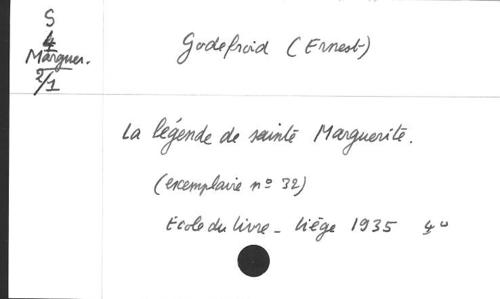 S
4
Marguer.
2/1
Godefroid (Ernest)
La légende de sainte Marguerite.
(exemplaire nº 32)
Ecole du livre - Liége 1935 4º